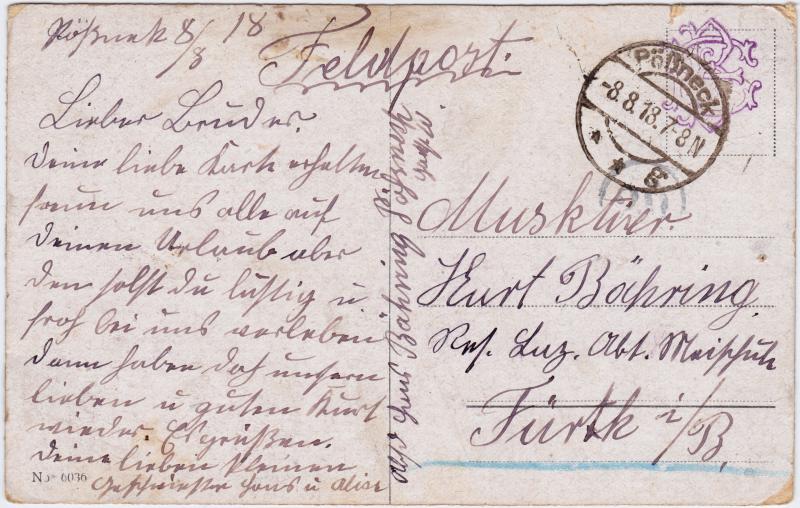 Pößneck 8/8 18
Feldpost.
Lieber Bruder.
deine liebe Karte erhalten
freun uns alle auf
deinen Urlaub aber
den solst du lustig u
froh bei uns verleben
dann haben doch unsern
lieben u guten Kurt
wieder. Es grüßen.
deine lieben kleinen
Geschwister Hans u Alice
No 6036
Pößneck
-8.8.18.7-8N
* * g
Musktier.
Kurt Böhring
Res. Laz. Abt. Maischule
Fürth i/B.
Hans Böhring Pößneck